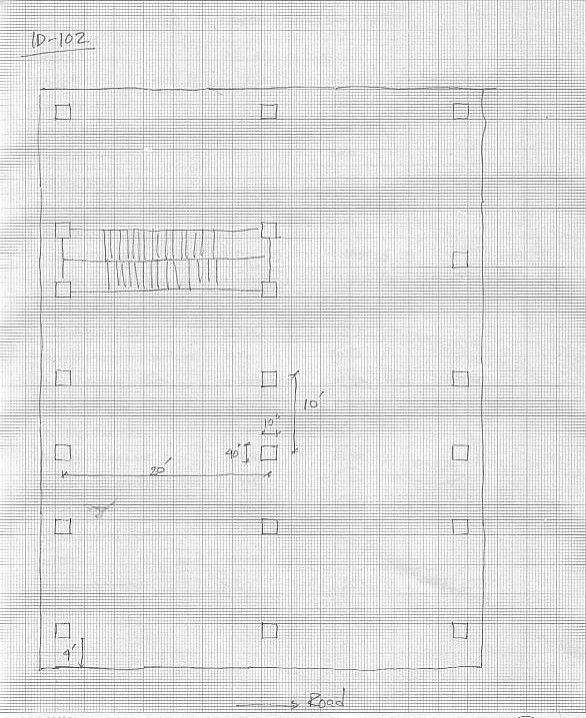 ID-102
10'
10"
40"
20'
4'
Road